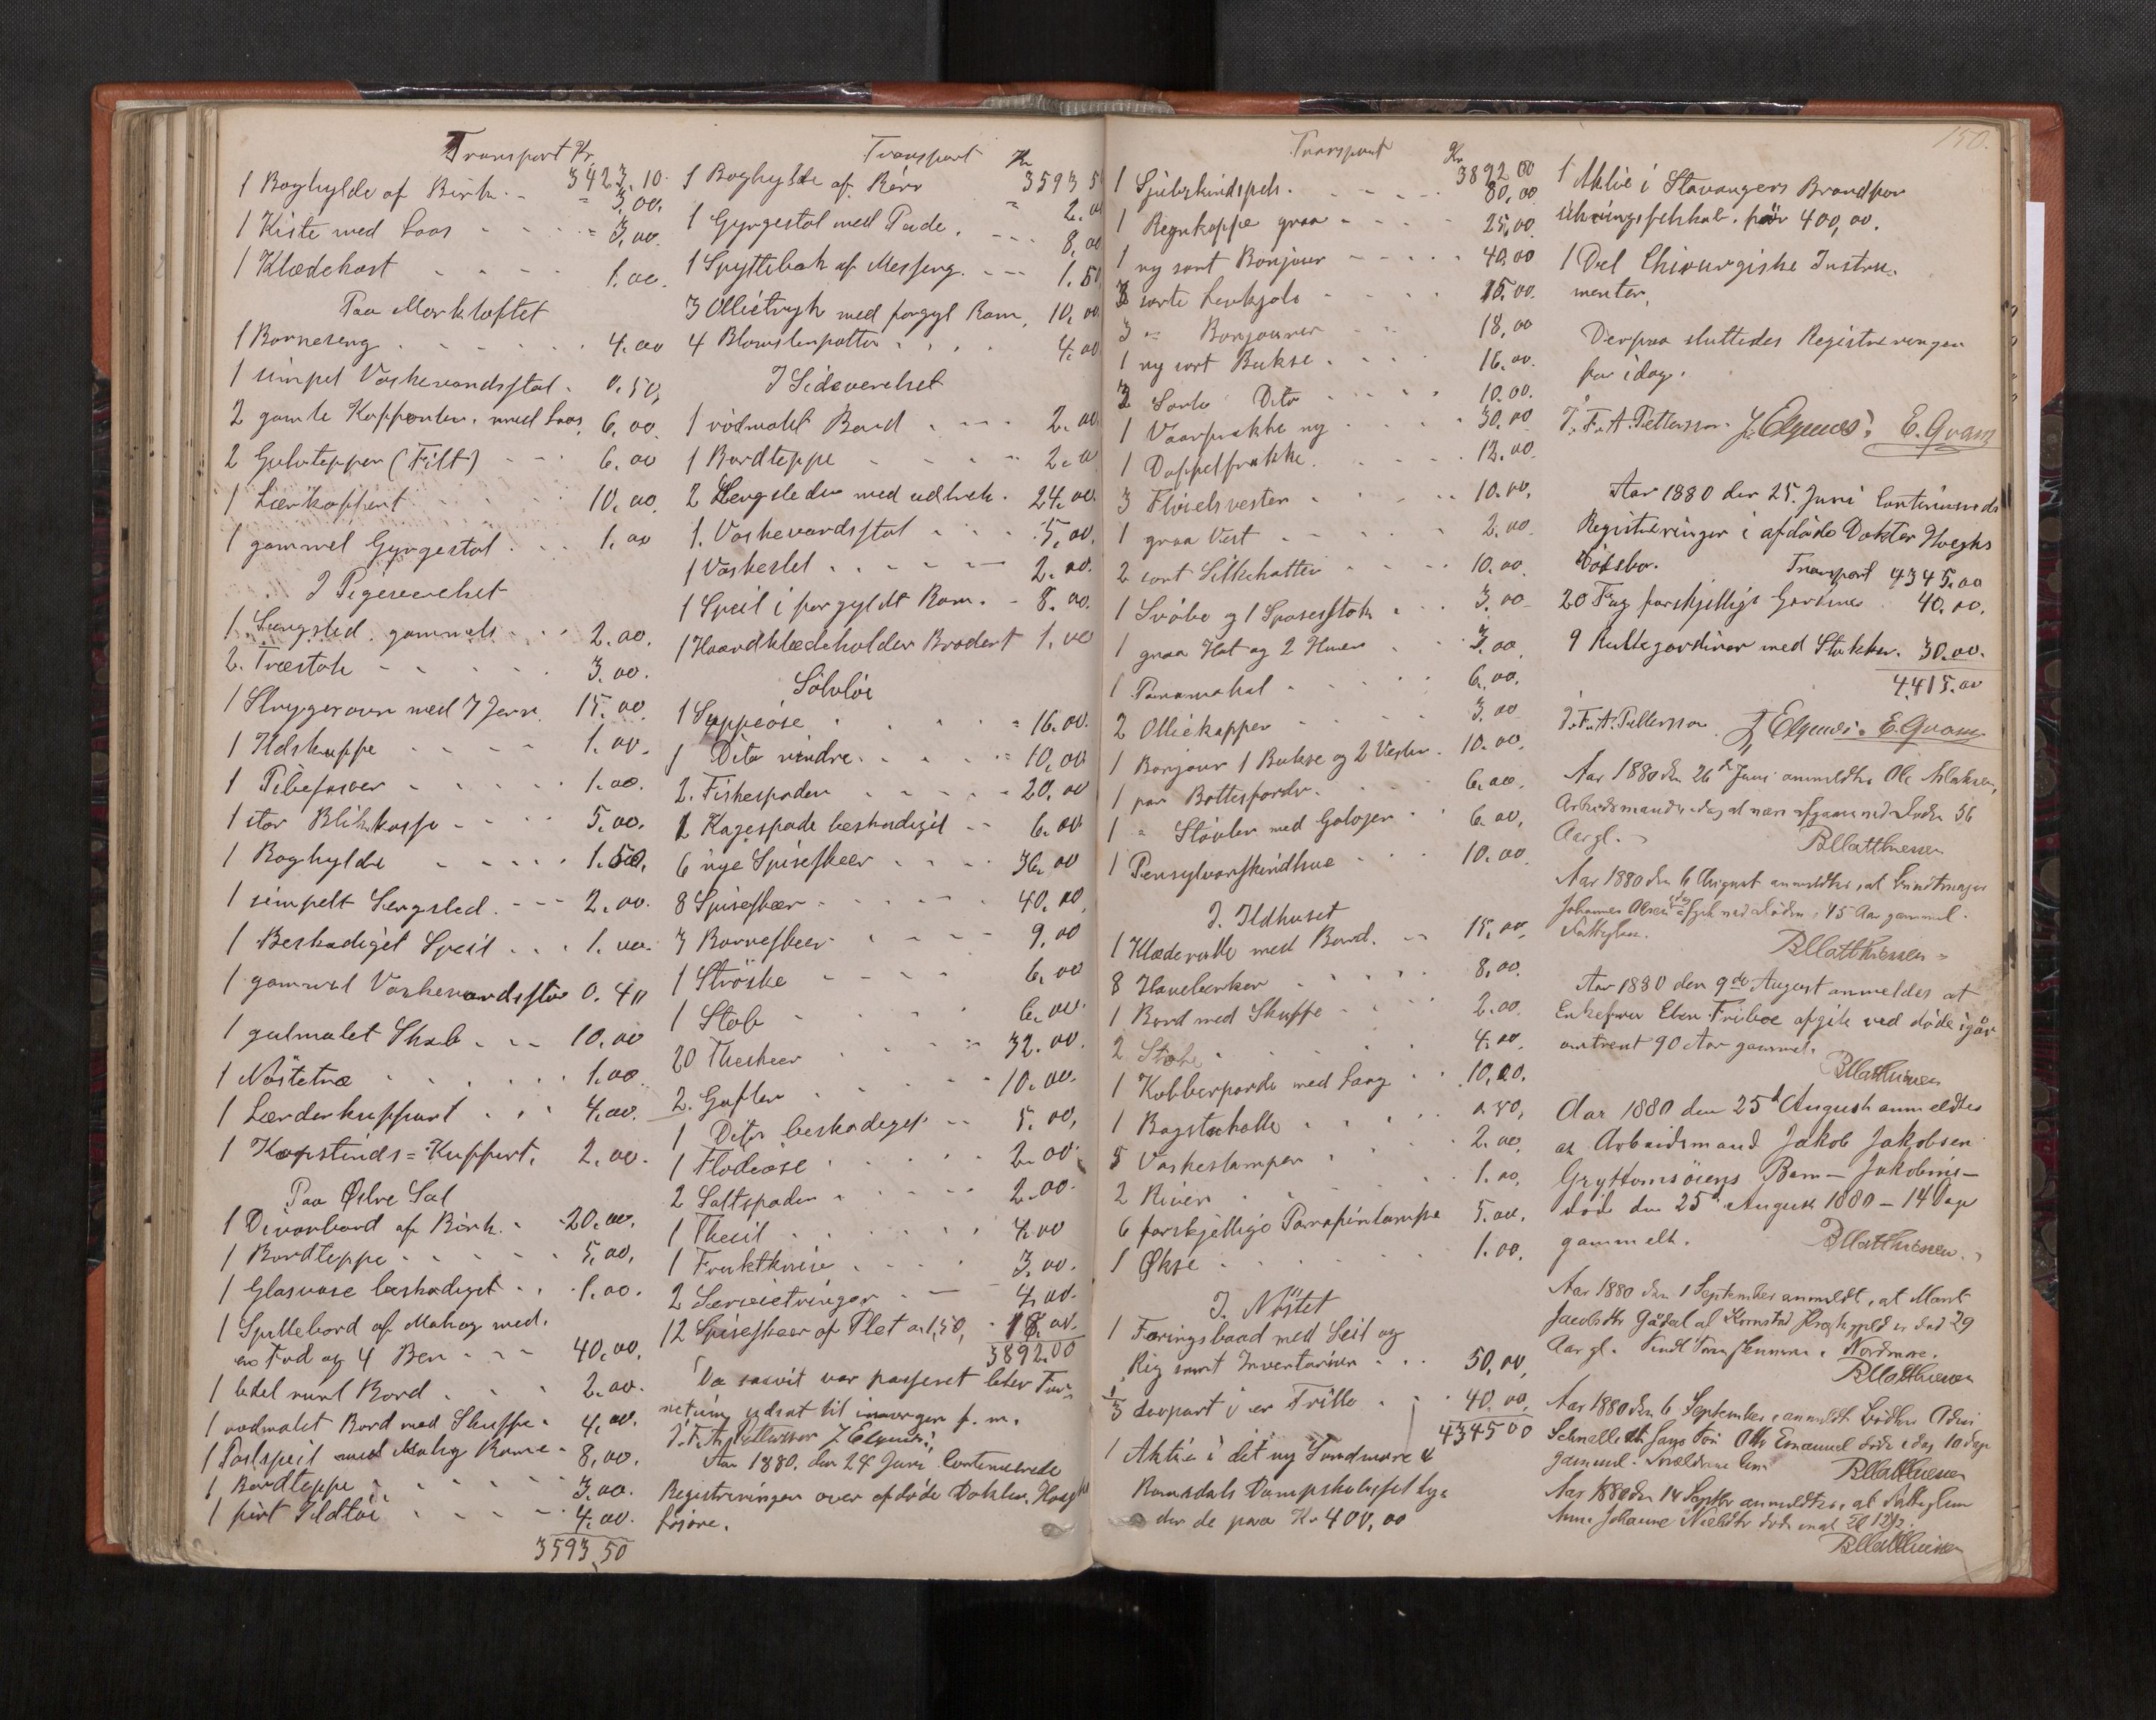 Transport Kr. 3423.10
1 Boghylde af Birk. - " 3,00.
1 Kiste med Laas - - - " 3,00.
1 Klædekost - - - - 1.00.
Paa Mørkloftet
1 Borneseng - - - - 4.00
1 simpel Vaskevandsstol. 0.50,
2 gamle Kofferter. med Laas 6,00.
2 Gulvtepper (Filt) - - 6.00
1 Lærkoffert - - - 10,00.
1 gammel Gyngestol. - - 1.00
I Pigeværelset
1 Sengsted. gammelt - - 2.00.
2. Træstole - - - - 3.00.
1 Strygeovn med 7 Jern. 15.00.
1 Ildskuffe - - - - 1.00.
1 - - - - 1.00.
1 stor Blikkasse - - - 5.00.
1 Boghylde - - - - 1.50,
1 simpelt Sengsted. - - - 2.00.
1 Beskadiget Speil - - - 1.00.
1 gammel Vaskevandsstol 0.40
1 gulmalet Skab - - - 10.00
1 - - - - 1.00
1 - - - 4.00.
1 2.00.
Paa Østre Sal
1 Divanbord af Birk. - 20.00.
1 Bordteppe - - - - 5,00,
1 Glasvase beskadiget - - 1.00.
1 Spillebord af Mahog med.
en Fod og 4 Ben - - - 40,00,
1 lidet rundt Bord - - - 2.00.
1 rødmalet Bord med Skuffe. 4,00.
1 med Mahog Rame - 8,00,
1 Bordteppe - - - - 3,00.
1 Ildtøi - - - - 4.00.
3593,50
Transport Kr 3593 5
1 Boghylde af " 2.0
1 Gyngestol med Pude. - - - 8,00
1 Spyttebak af Messing. - - - 1.50
3 Olietryk med forgyl Ram, 10,00
4 Blomsterpotter - - - 4.00
I Sideværelset
1 rødmalet Bord - - - - 2.00
1 Bordteppe - - - - 2.0
2 Sengsteder med udtræk. 24.00.
1. Vaskevandsstol - - - 5,00.
1 - - - - 2.00.
1 Speil i forgyldt Ram. - 8.00.
1 Haandklædeholder Broderet 1.00
Sølvtøi
1 Suppeøse - - - - " 16.00.
1 Dito mindre - - - " 10,00
2. Fiskespader - - - - 20,00
1 Kagespade beskadiget - - 6.00
6 nye Spiseskeer - - - - 36,00
8 Spiseskeer - - - - 40,00,
3 Børneskeer - - - - 9,00
1 Strøske - - - - 6,00
1 Stob - - - - 6.00.
20 Theskeer - - - - 32.00.
2. Gafler - - - - 10.00.
1 Dito beskadiget - - 5.00,
1 Flødeøse - - - - 2.00.
2 Saltspader - - - - 2.00.
1 Thesil - - - - 4.00
1 Fruktkniv - - - - 3.00.
2 Servietringer - - - 4.00.
12 Spiseskeer af Plet a 1,50, - 18.00.
3892.00
Da saavit var passeret blev
udsat til imorgen f. m.
J.F.A. Pettersson
Aar 1880. den 24 Juni Continuerede
Registreringen over afdøde Doktor
150.
Transport Kr 3892 00
1 - - - - 80,00
1 Regnkappe graa - - - 25,00
1 ny sort Bonjour - - - - 40.00
3 sorte - - - - 15.00.
3 " Bonjourer - - - 18,00
1 ny sort Bukse - - - - 16.00.
2 Sorte Dito - - - - 10.00.
1 Vaarfrakke ny - - - - 30.00
1 Doppelfrakke. - - - 12.00.
3 Fløielsvester - - - - 10.00,
1 graa Vest - - - - 2.00.
2 sort Silkehatter - - - 10.00.
1 og 1 - 3,00
1 graa Hat og 2 Huer - - 3,00
1 - - - - 6,00.
2 Oliekapper - - - - 3,00
1 Bonjour 1 Bukse og 2 Vester. 10.00,
1 par - - - 6,00.
1 " Støvler med Galoger - - 6.00,
1 - - - 10.00
I. Ildhuset
1 Klæderulle med Bord. - - 15.00,
8 Havebænker - - - 8,00.
1 Bord med Skuffe - - - 2.00.
2 Stole - - - 4,00,
1 Kobberpande med Laag - - 10,00.
1 - - - - 0.50,
5 Vaskestamper - - - 2.00,
2 River - - - - 1.00,
6 forskjellige Parafinlampe 5.00.
1 Økse - - - - 1.00.
I. Nøstet
1 Færingsbaad med Seil og
Rig samt Inventarium - - 50,00,
1/3 i en Trille - - - 40.00,
4345 00
1 Aktie i det ny Sundmøre &
Romsdals Dampskibsselskab
de paa Kr 400,00
1 Aktie i Stavangers Brandfor
sikringsselskab. paa 400,00.
1 Del Chirurgiske Instru-
menter,
Derpaa sluttedes Registreringen
for idag.
J.F.A. Pettersson. E. Qvam
Aar 1880 den 25. Juni Continueredes
Registreringen i afdøde Doktor
Dødsbo. Transport 4345.00
20 Fag forskjellige Gardiner 40.00,
9 Rullegardiner med Stokker. 30.00.
4.415.00
J.F.A. Pettersson E. Qvam
Aar 1880 den 26de Juni anmeldtes Ole Aslaksen,
Arbeidsmand, idag at være afgaaet ved Døden 56
Aar gl. BMatthiessen
Aar 1880 den 6 August anmeldtes, at
Johannes Olsen idag afgik ved Døden, 45 Aar gammel.
BMatthiessen
Aar 1880 den 9de August anmeldes at
Enkefrue Elen Friboe afgik ved døde igaar
omtrent 90 Aar gammel.
BMatthiessen
Aar 1880 den 25de August anmeldtes
at Arbeidsmand Jakob Jakobsen
Barn - Jakobine -
døde den 25de August 1880 - 14 Dage
gammelt. BMatthiessen.
Aar 1880 den 1 September anmeldt, at Marit
Jacobsdtr er død 29
Aar gl. Nordmøre.
BMatthiessen
Aar 1880 den 6 September, anmeldte
Søn Otto Emanuel døde idag 10 dage
gammel. Forældrene BMatthiessen
Aar 1880 den 14 Septbr anmeldtes, at
Anne Johanne Nielsdtr døde
BMatthiessen